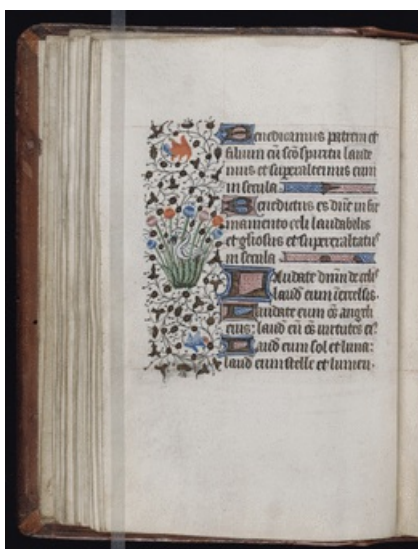 Benedicamus patrem et
filium cū scō spiritu laude
mus et superaltemus eum
in secula.
Benedictus es dn̄e in fir
mamento celi laudabilis
et gl̄iosus et superexaltatus
in secula
Laudate dnm̄ de celis
laud̄ eum ī excelsis.
Laudate eum oēs angeli
eius: laud̄ eū oēs virtutes eiꝰ.
Laud̄ eum sol et luna:
laud̄ eum stelle et lumen.